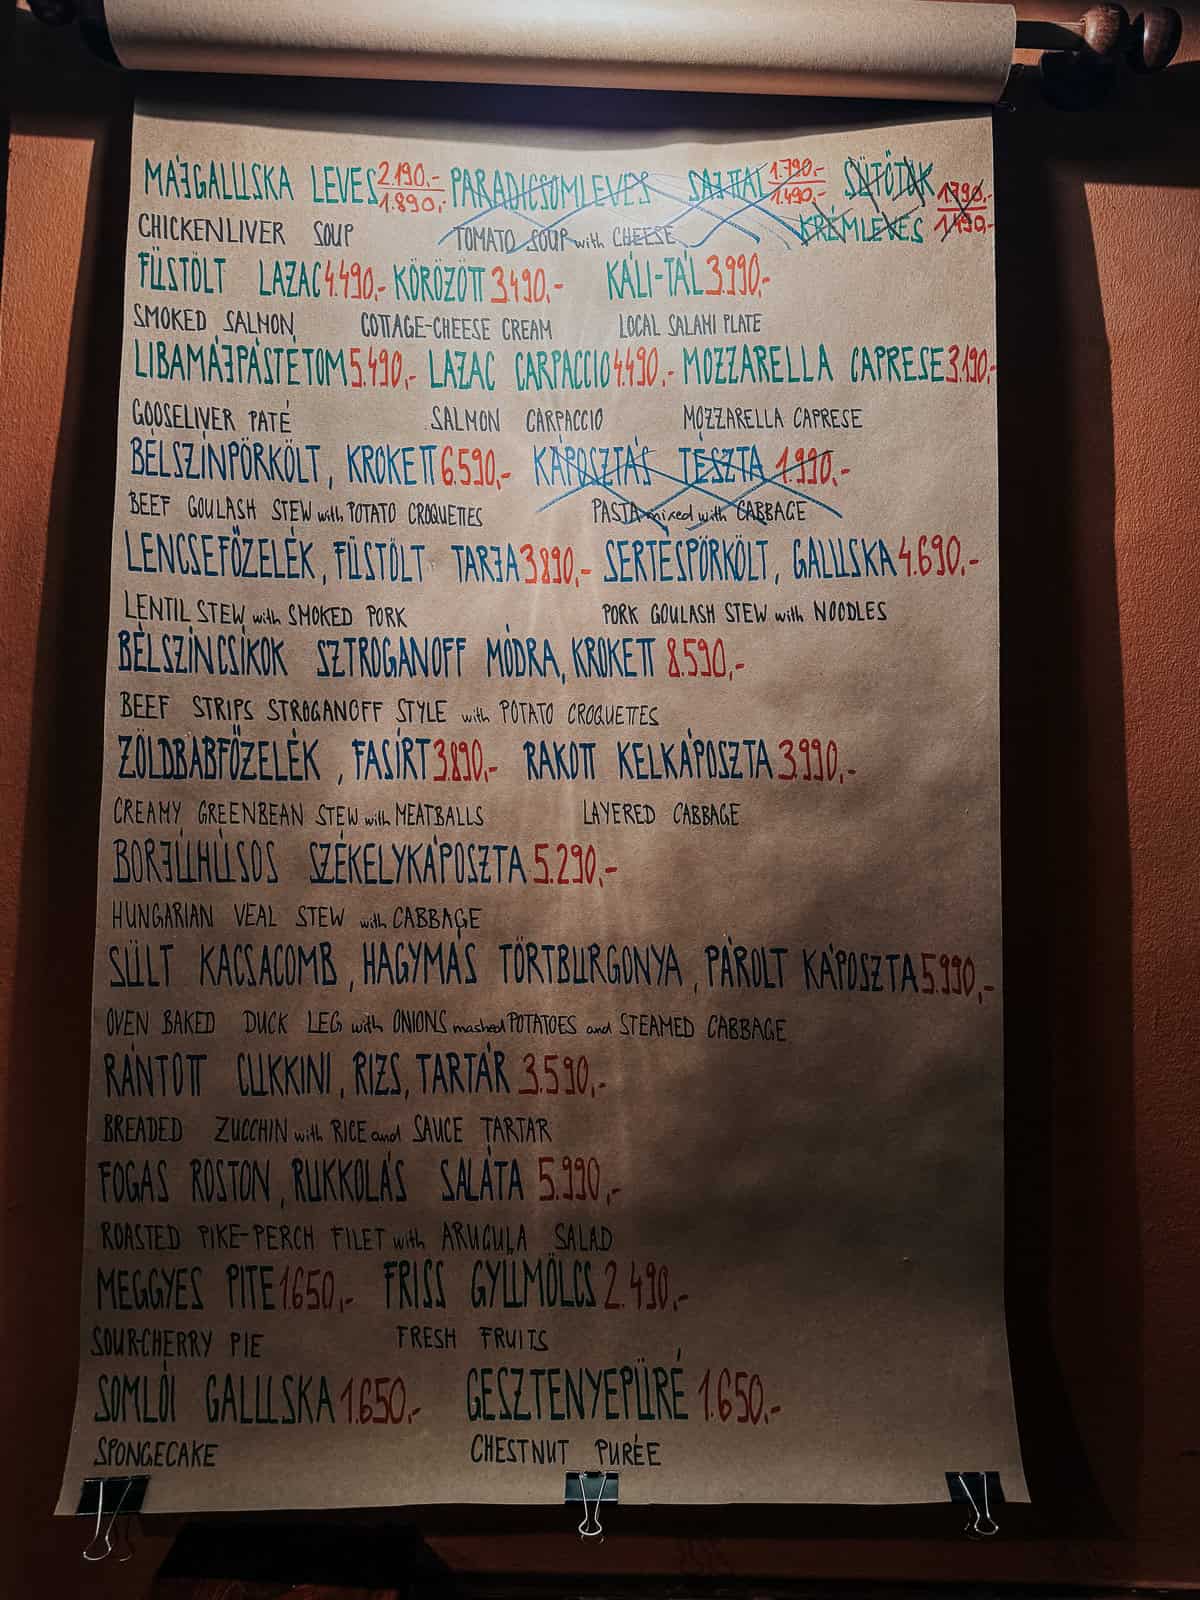 MÁJGALUSKA LEVES 2.190,- 1.890,- PARADICSOMLEVES SAJTTAL 1.790,- 1.490,- SÜTŐTÖK
CHICKENLIVER SOUP TOMATO SOUP with CHEESE KRÉMLEVES 1.790,- 1.490,-
FÜSTÖLT LAZAC 4.490,- KÖRÖZÖTT 3.490,- KÁLI-TÁL 3.990,-
SMOKED SALMON COTTAGE-CHEESE CREAM LOCAL SALAMI PLATE
LIBAMÁJPÁSTÉTOM 5.490,- LAZAC CARPACCIO 4.490,- MOZZARELLA CAPRESE 3.190,-
GOOSELIVER PATÉ SALMON CARPACCIO MOZZARELLA CAPRESE
BÉLSZÍNPÖRKÖLT, KROKETT 6.590,- KÁPOSZTÁS TÉSZTA 1.990,-
BEEF GOULASH STEW with POTATO CROQUETTES PASTA mixed with CABBAGE
LENCSEFŐZELÉK, FÜSTÖLT TARJA 3890,- SERTÉSPÖRKÖLT, GALUSKA 4.690,-
LENTIL STEW with SMOKED PORK PORK GOULASH STEW with NOODLES
BÉLSZÍNCSÍKOK SZTROGANOFF MÓDRA, KROKETT 8.590,-
BEEF STRIPS STROGANOFF STYLE with POTATO CROQUETTES
ZÖLDBABFŐZELÉK, FASÍRT 3.890,- RAKOTT KELKÁPOSZTA 3.990,-
CREAMY GREENBEAN STEW with MEATBALLS LAYERED CABBAGE
BORJÚHÚSOS SZÉKELYKÁPOSZTA 5.290,-
HUNGARIAN VEAL STEW with CABBAGE
SÜLT KACSACOMB, HAGYMÁS TÖRTBURGONYA, PÁROLT KÁPOSZTA 5.990,-
OVEN BAKED DUCK LEG with ONIONS mashed POTATOES and STEAMED CABBAGE
RÁNTOTT CUKKINI, RIZS, TARTÁR 3.590,-
BREADED ZUCCHIN with RICE and SAUCE TARTAR
FOGAS ROSTON, RUKKOLÁS SALÁTA 5.990,-
ROASTED PIKE-PERCH FILET with ARUGULA SALAD
MEGGYES PITE 1.650,- FRISS GYÜMÖLCS 2.490,-
SOUR-CHERRY PIE FRESH FRUITS
SOMLÓI GALUSKA 1.650,- GESZTENYEPÜRÉ 1.650,-
SPONGECAKE CHESTNUT PURÉE